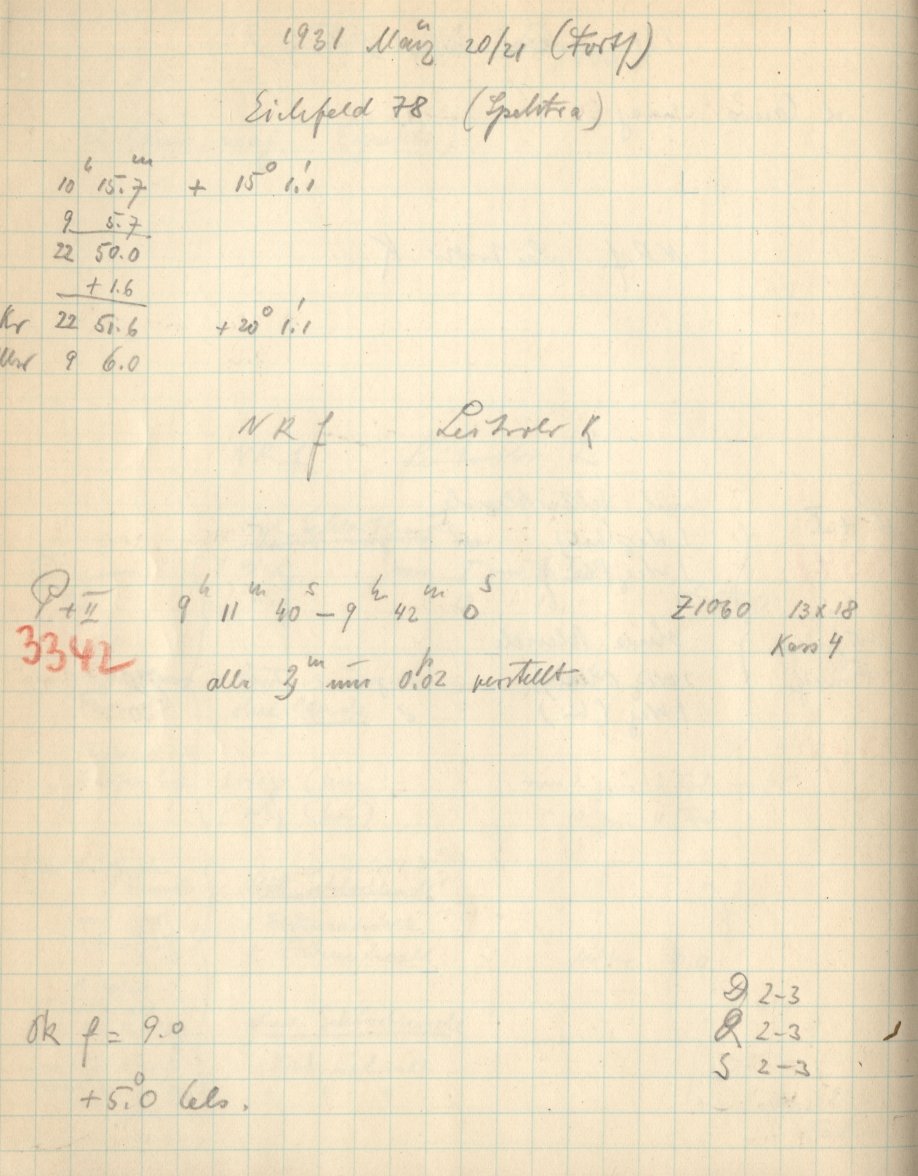 1931 März 20/21 (Fortf)
Eichfeld 78 (Spektra)
10ʰ 15.7ᵐ + 15° 1.'1
9 5.7
22 50.0
+ 1.6
Kr 22 51.6 + 20° 1.'1
Uhr 9 6.0
NR f Leitrohr K
P + II 9ʰ 11ᵐ 40ˢ – 9ʰ 42ᵐ 0ˢ Z1060 13 x 18
3342 Kass 4
alle 3ᵐ um 0.02 verstellt
D 2–3
Ok f = 9.0 R 2–3
S 2–3
+ 5.°0 Cels.